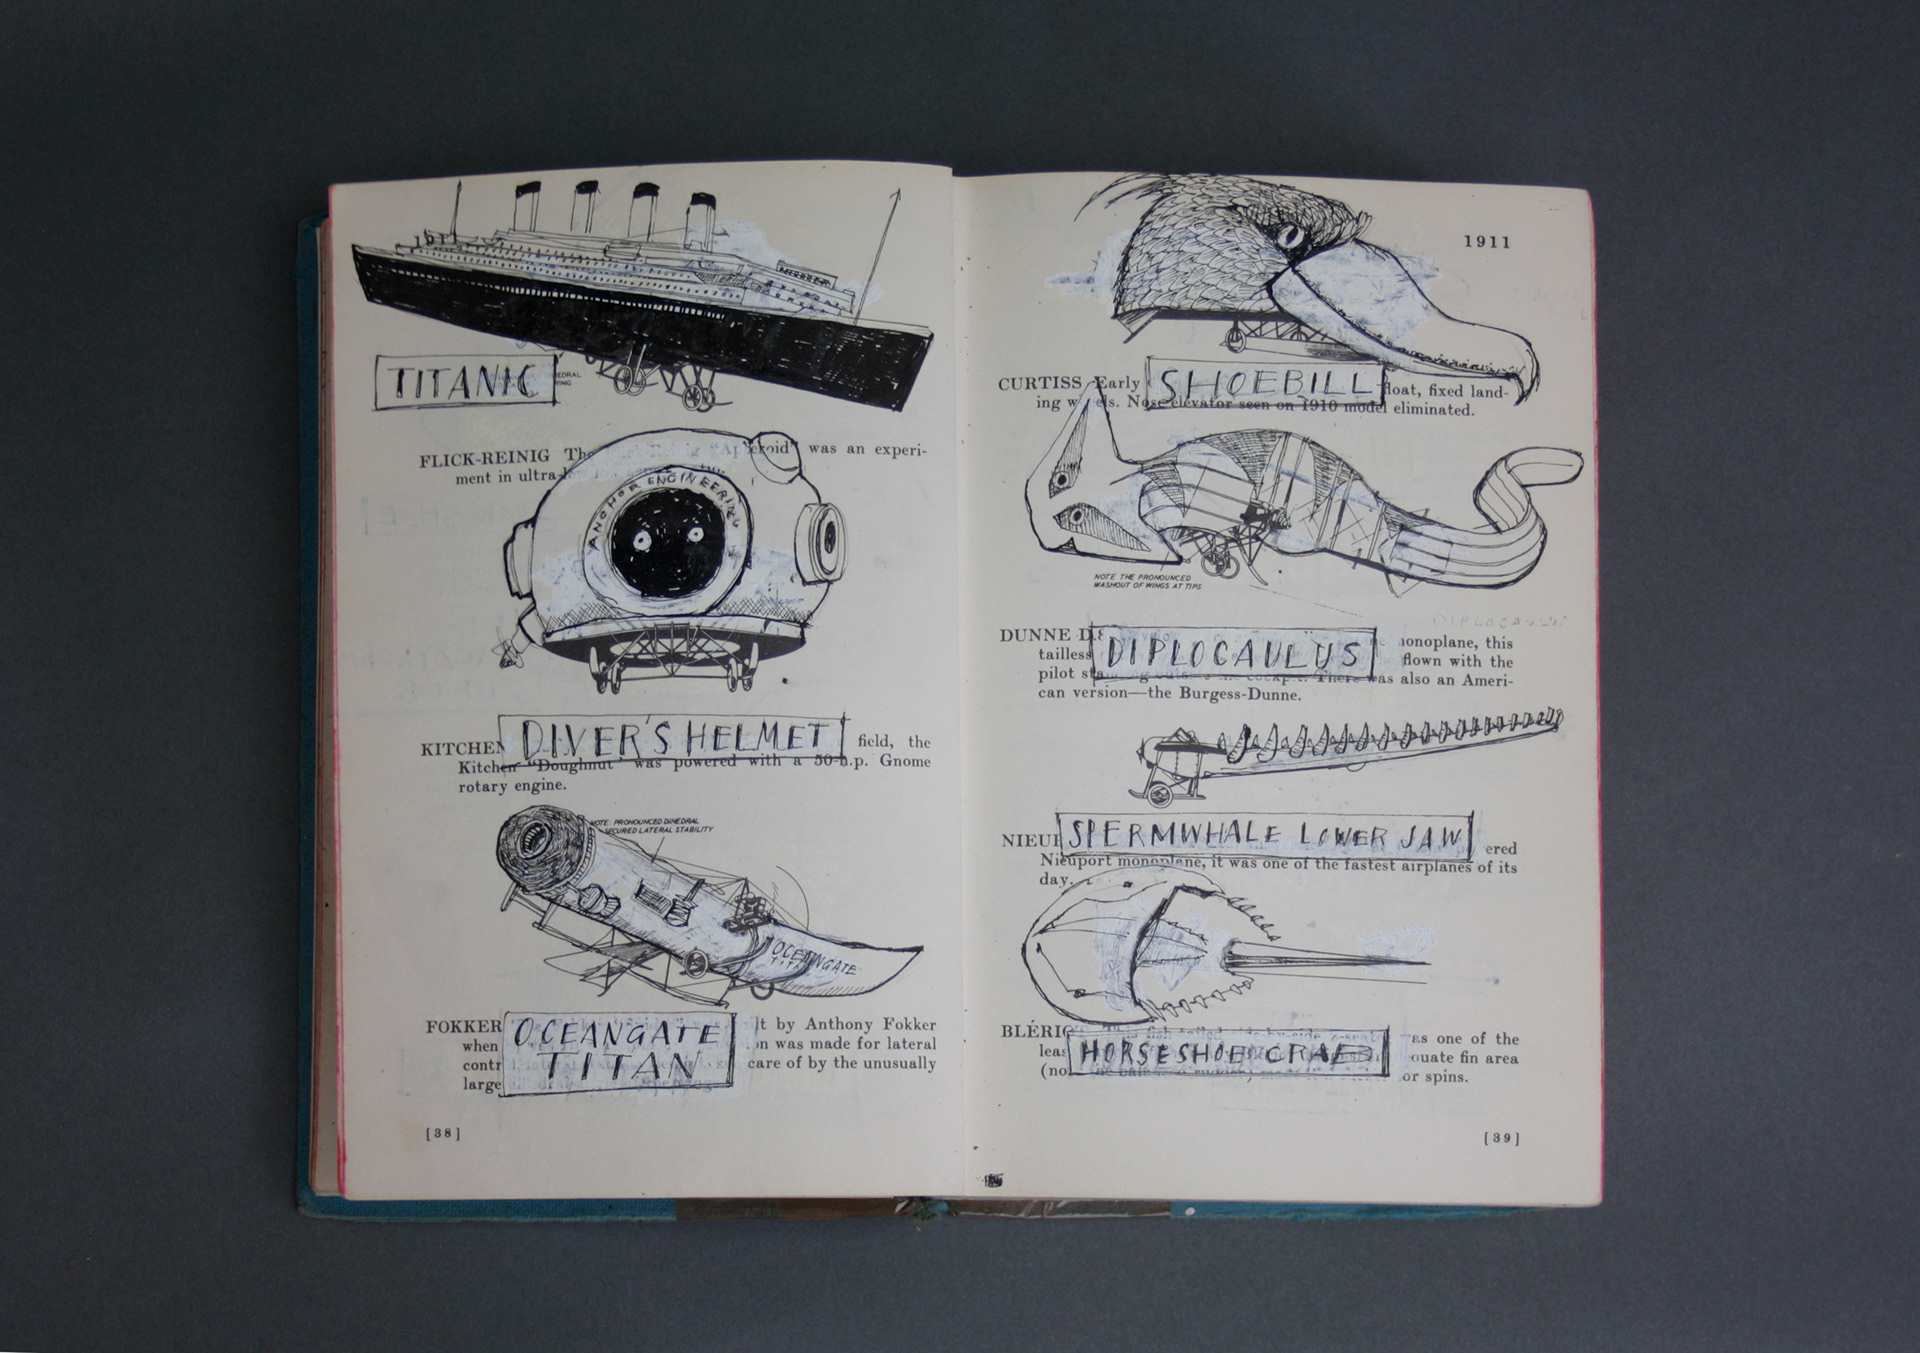 TITANIC
EDRAL
ING
FLICK-REINIG The "Apteroid" was an experi-
ment in ultra-
ANCHOR ENGINEERING
DIVER'S HELMET
KITCHEN field, the
Kitchen "Doughnut" was powered with a 50-h.p. Gnome
rotary engine.
NOTE: PRONOUNCED DIHEDRAL
SECURED LATERAL STABILITY
OCEANGATE
TITAN
OCEANGATE
TITAN
FOKKER lt by Anthony Fokker
when on was made for lateral
contr care of by the unusually
large
[38]
1911
SHOEBILL
CURTISS Early float, fixed land-
ing wheels. Nose elevator seen on 1910 model eliminated.
NOTE THE PRONOUNCED
WASHOUT OF WINGS AT TIPS
DIPLOCAULUS
DIPLOCAULUS
DUNNE D.8 monoplane, this
tailless flown with the
pilot standing outside the cockpit. There was also an Ameri-
can version—the Burgess-Dunne.
SPERMWHALE LOWER JAW
NIEUP ered
Nieuport monoplane, it was one of the fastest airplanes of its
day.
HORSESHOE CRAB
BLÉRIO This fish-tailed side-by-side was one of the
leas quate fin area
(no or spins.
[39]